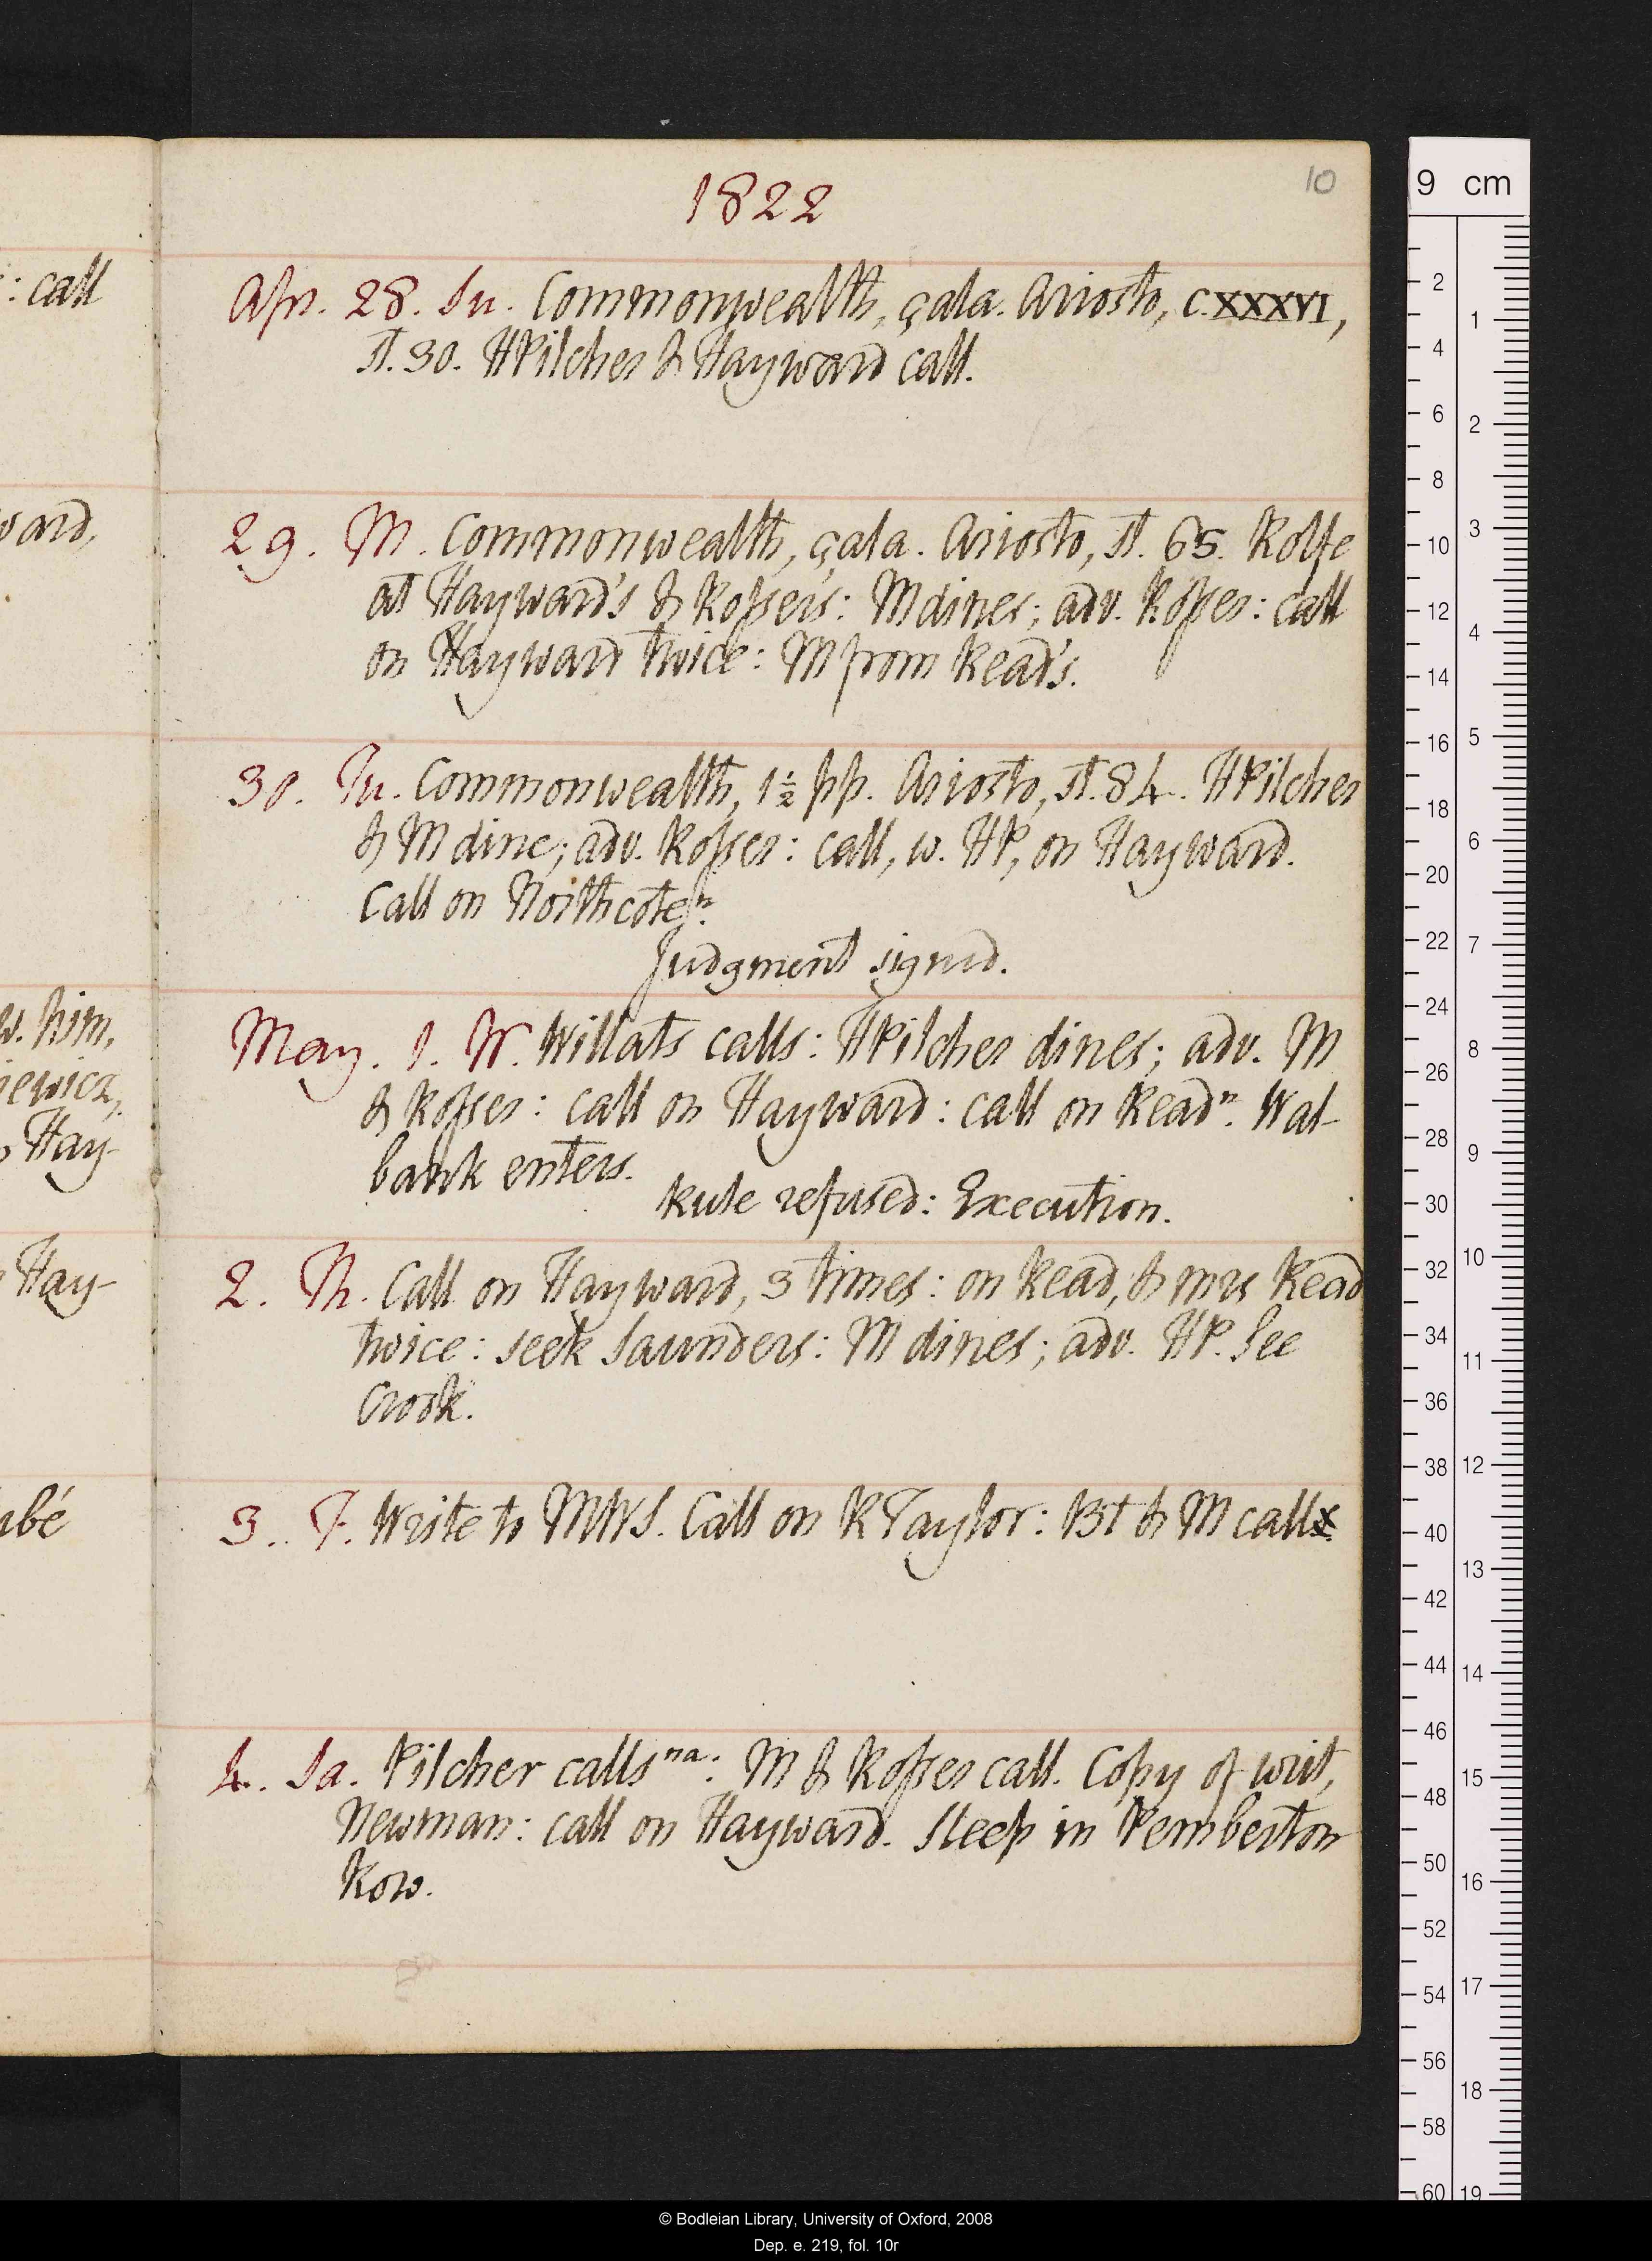 1822
10
Apr. 28. Su. Commonwealth, çala. Ariosto, C. XXXVI,
st. 30. HPilcher & Hayward call.
29. M. Commonwealth, çala. Ariosto, st. 65. Rolfe
at Hayward's & Rosser's: M dines; adv. Rosser: call
on Hayward twice: M from Read's.
30. Tu. Commonwealth, 1½ pp. Ariosto, st. 84. HPilcher
& M dine; adv. Rosser: call, w. HP, on Hayward.
Call on Northcote n.
Judgment signed.
May. 1. W. Willats calls: HPilcher dines; adv. M
& Rosser: call on Hayward: call on Read n. Wal-
bank enters.
Rule refused: Execution.
2. Th. Call on Hayward, 3 times: on Read, & mrs Read
twice: seek Saunders: M dines; adv. HP. See
Crook.
3. F. Write to MWS. Call on RTaylor: BT & M call
4. Sa. Pilcher calls na: M & Rosser call. Copy of writ,
Newman: call on Hayward. Sleep in Pemberton
Row.
: call
ward,
w. him,
iewicz,
Hay-
Hay-
bé
9 cm
2
4
6
8
10
12
14
16
18
20
22
24
26
28
30
32
34
36
38
40
42
44
46
48
50
52
54
56
58
60
1
2
3
4
5
6
7
8
9
10
11
12
13
14
15
16
17
18
19
© Bodleian Library, University of Oxford, 2008
Dep. e. 219, fol. 10r